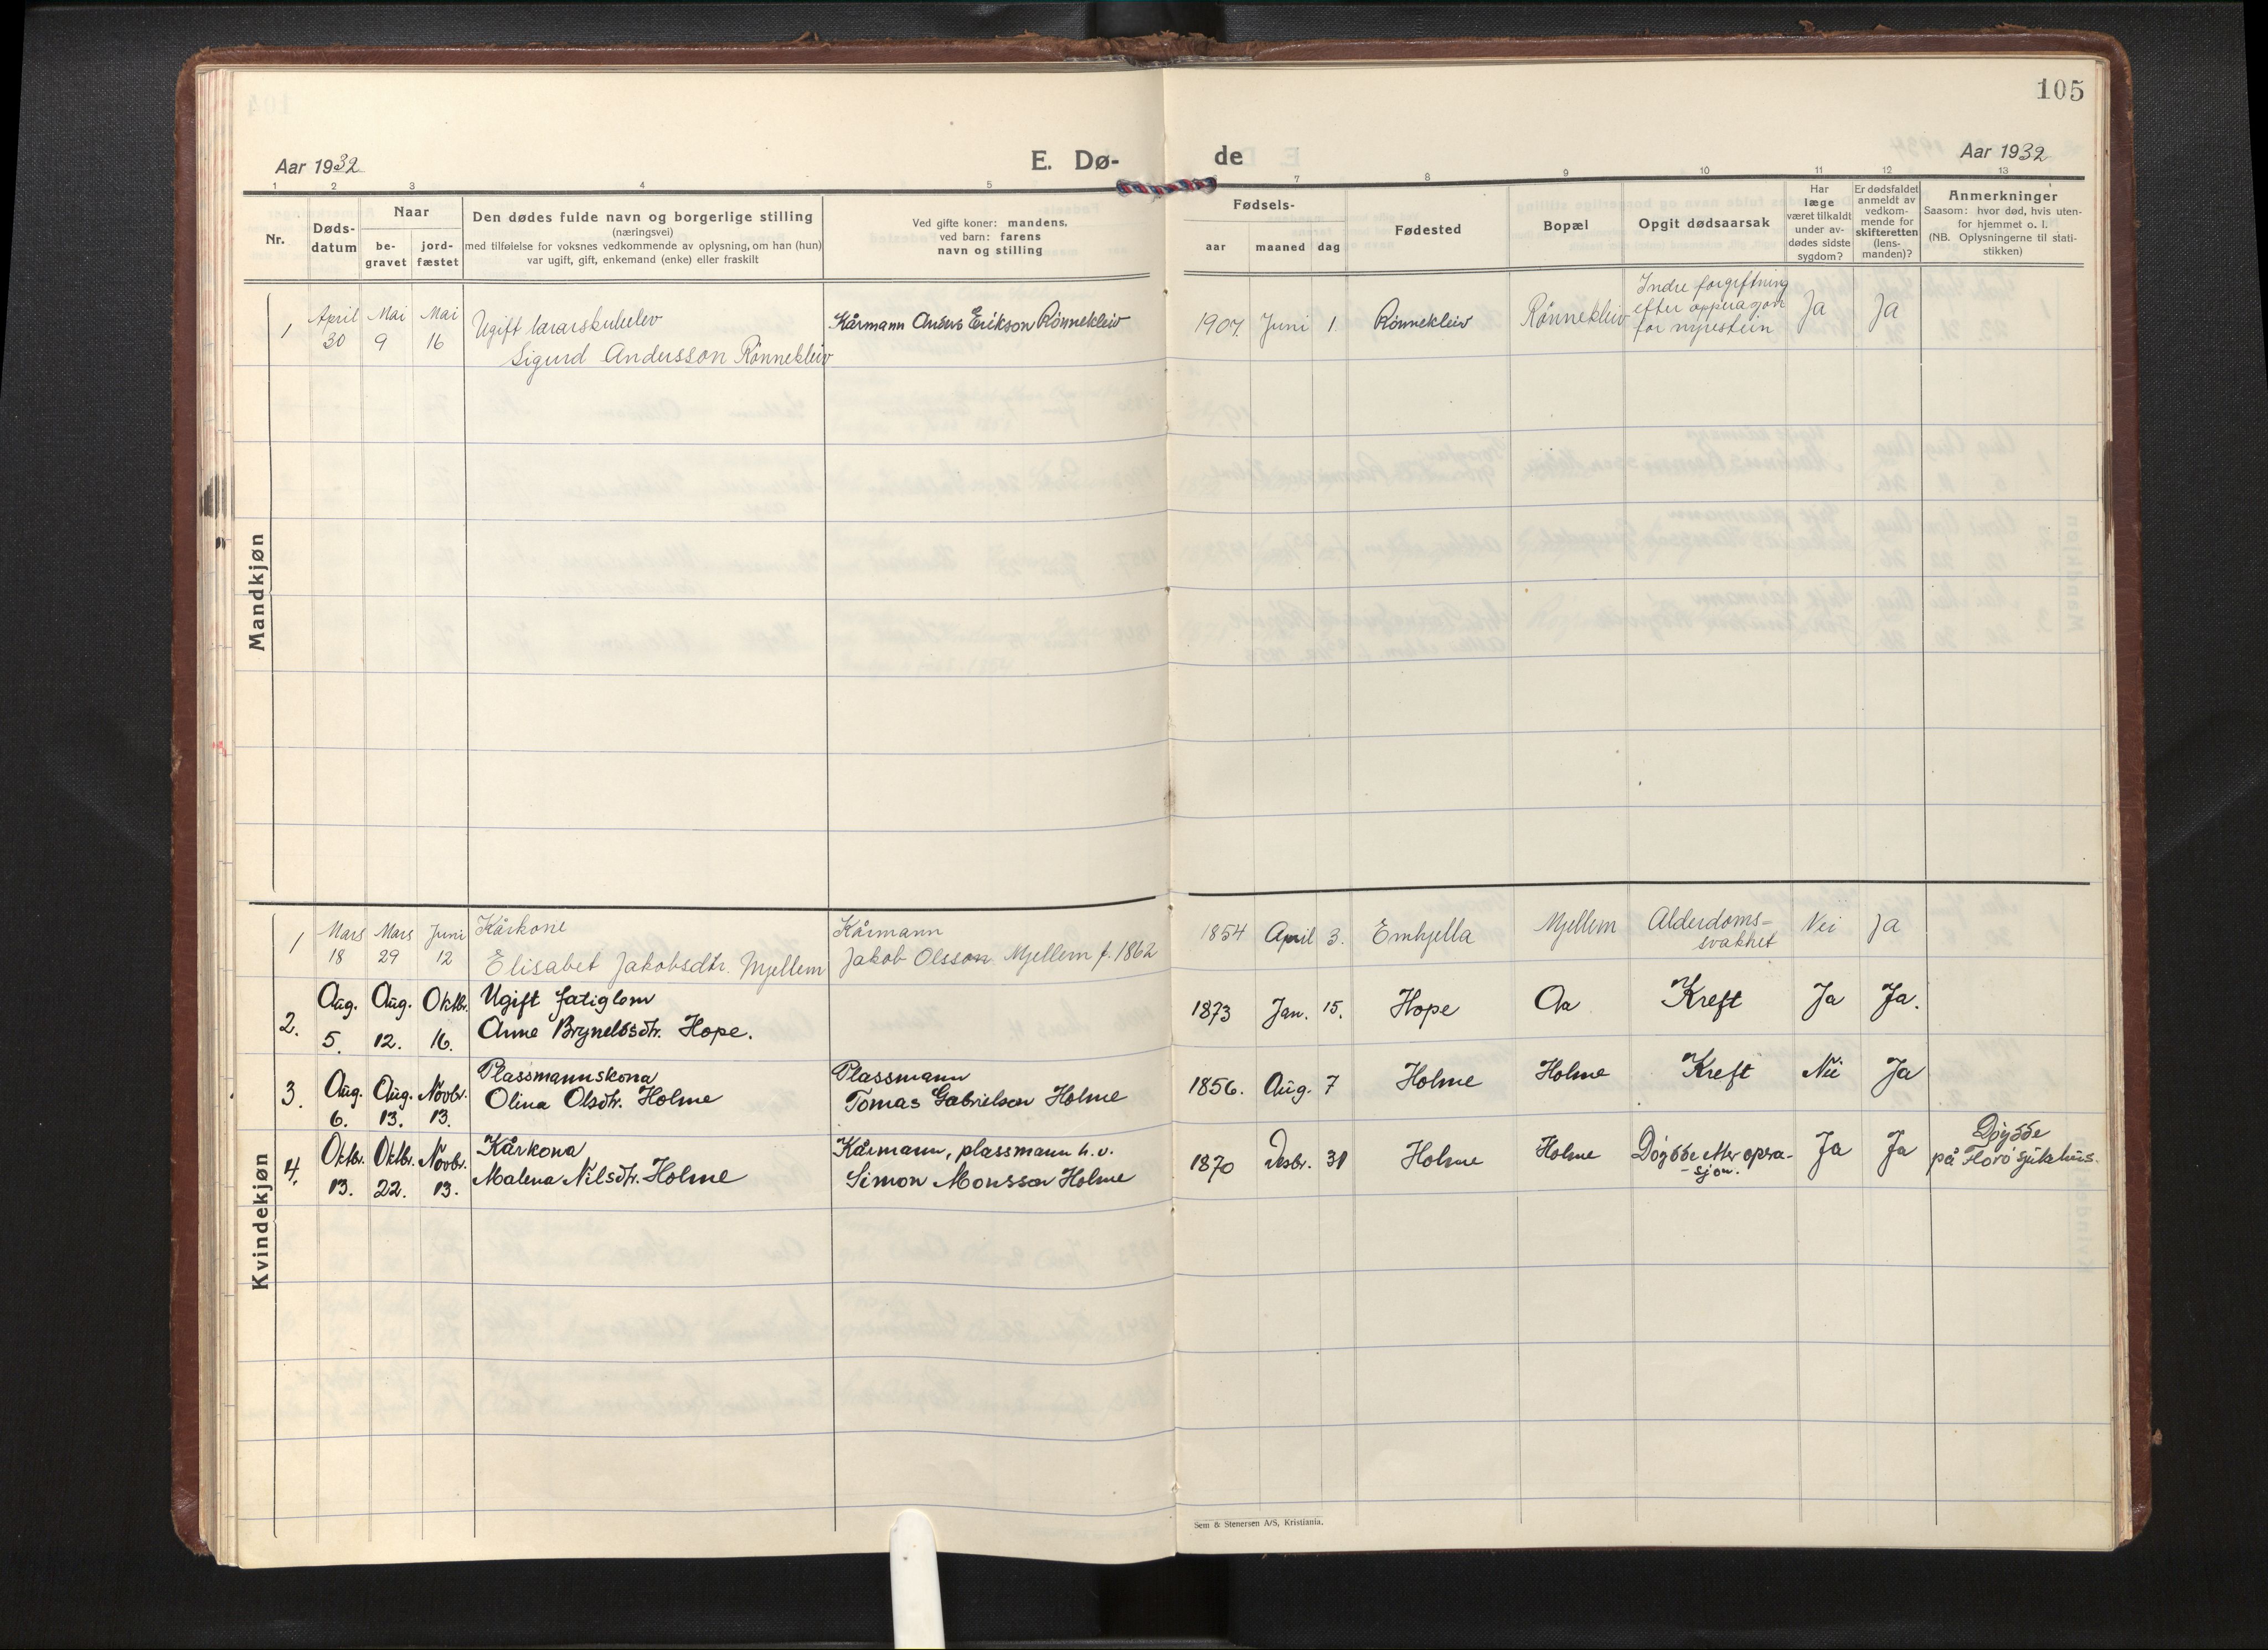 105
Aar 1932
E. Dø-
de
Aar 1932
1 2 3 4 5 7 8 9 10 11 12 13
Nr.
Døds-
datum
Naar
be-
gravet
jord-
fæstet
Den dødes fulde navn og borgerlige stilling
(næringsvei)
med tilføielse for voksnes vedkommende av oplysning, om han (hun)
var ugift, gift, enkemand (enke) eller fraskilt
Ved gifte koner: mandens,
ved barn: farens
navn og stilling
Fødsels-
aar
maaned
dag
Fødested
Bopæl
Opgit dødsaarsak
Har
læge
været tilkaldt
under av-
dødes sidste
sygdom?
Er dødsfaldet
anmeldt av
vedkom-
mende for
skifteretten
(lens-
manden)?
Anmerkninger
Saasom: hvor død, hvis uten-
for hjemmet o. l.
(NB. Oplysningerne til stati-
stikken)
Mandkjøn
1 April 30 Mai 9 Mai 16
Ugift lærarskuleelev
Sigurd Andersson Rønnekleiv
Kårmann Anders Erikson Rønnekleiv
1907. Juni 1. Rønnekleiv Rønnekleiv
Indre forgiftning
efter opperasjon
for nyrestein
Ja Ja
Kvindekjøn
1 Mars 18 Mars 29 Juni 12
Kårkone
Elisabet Jakobsdtr. Mjellem
Kårmann
Jakob Olsson Mjellem f. 1862
1854 April 3. Emhjella Mjellem
Alderdoms=
svakhet
Nei Ja
2. Aug. 5. Aug. 12. Oktbr. 16.
Ugift fatiglem
Anne Brynelsdtr. Hope.
1873 Jan. 15. Hope Aa Kreft Ja Ja.
3. Aug. 6. Aug. 13. Novbr. 13.
Plassmannskona
Olina Olsdtr. Holme
Plassmann
Tomas Gabrielson Holme
1856. Aug. 7 Holme Holme Kreft Nei Ja
4. Oktbr. 13. Oktbr. 22. Novbr. 13.
Kårkona
Malena Nilsdtr. Holme
Kårmann, plassmann h. v.
Simon Monsson Holme
1870 Desbr. 31 Holme Holme
Døydde etter opera-
-sjon.
Ja Ja
Døydde
på Florø sjukehus.
Sem & Stenersen A/S, Kristiania.